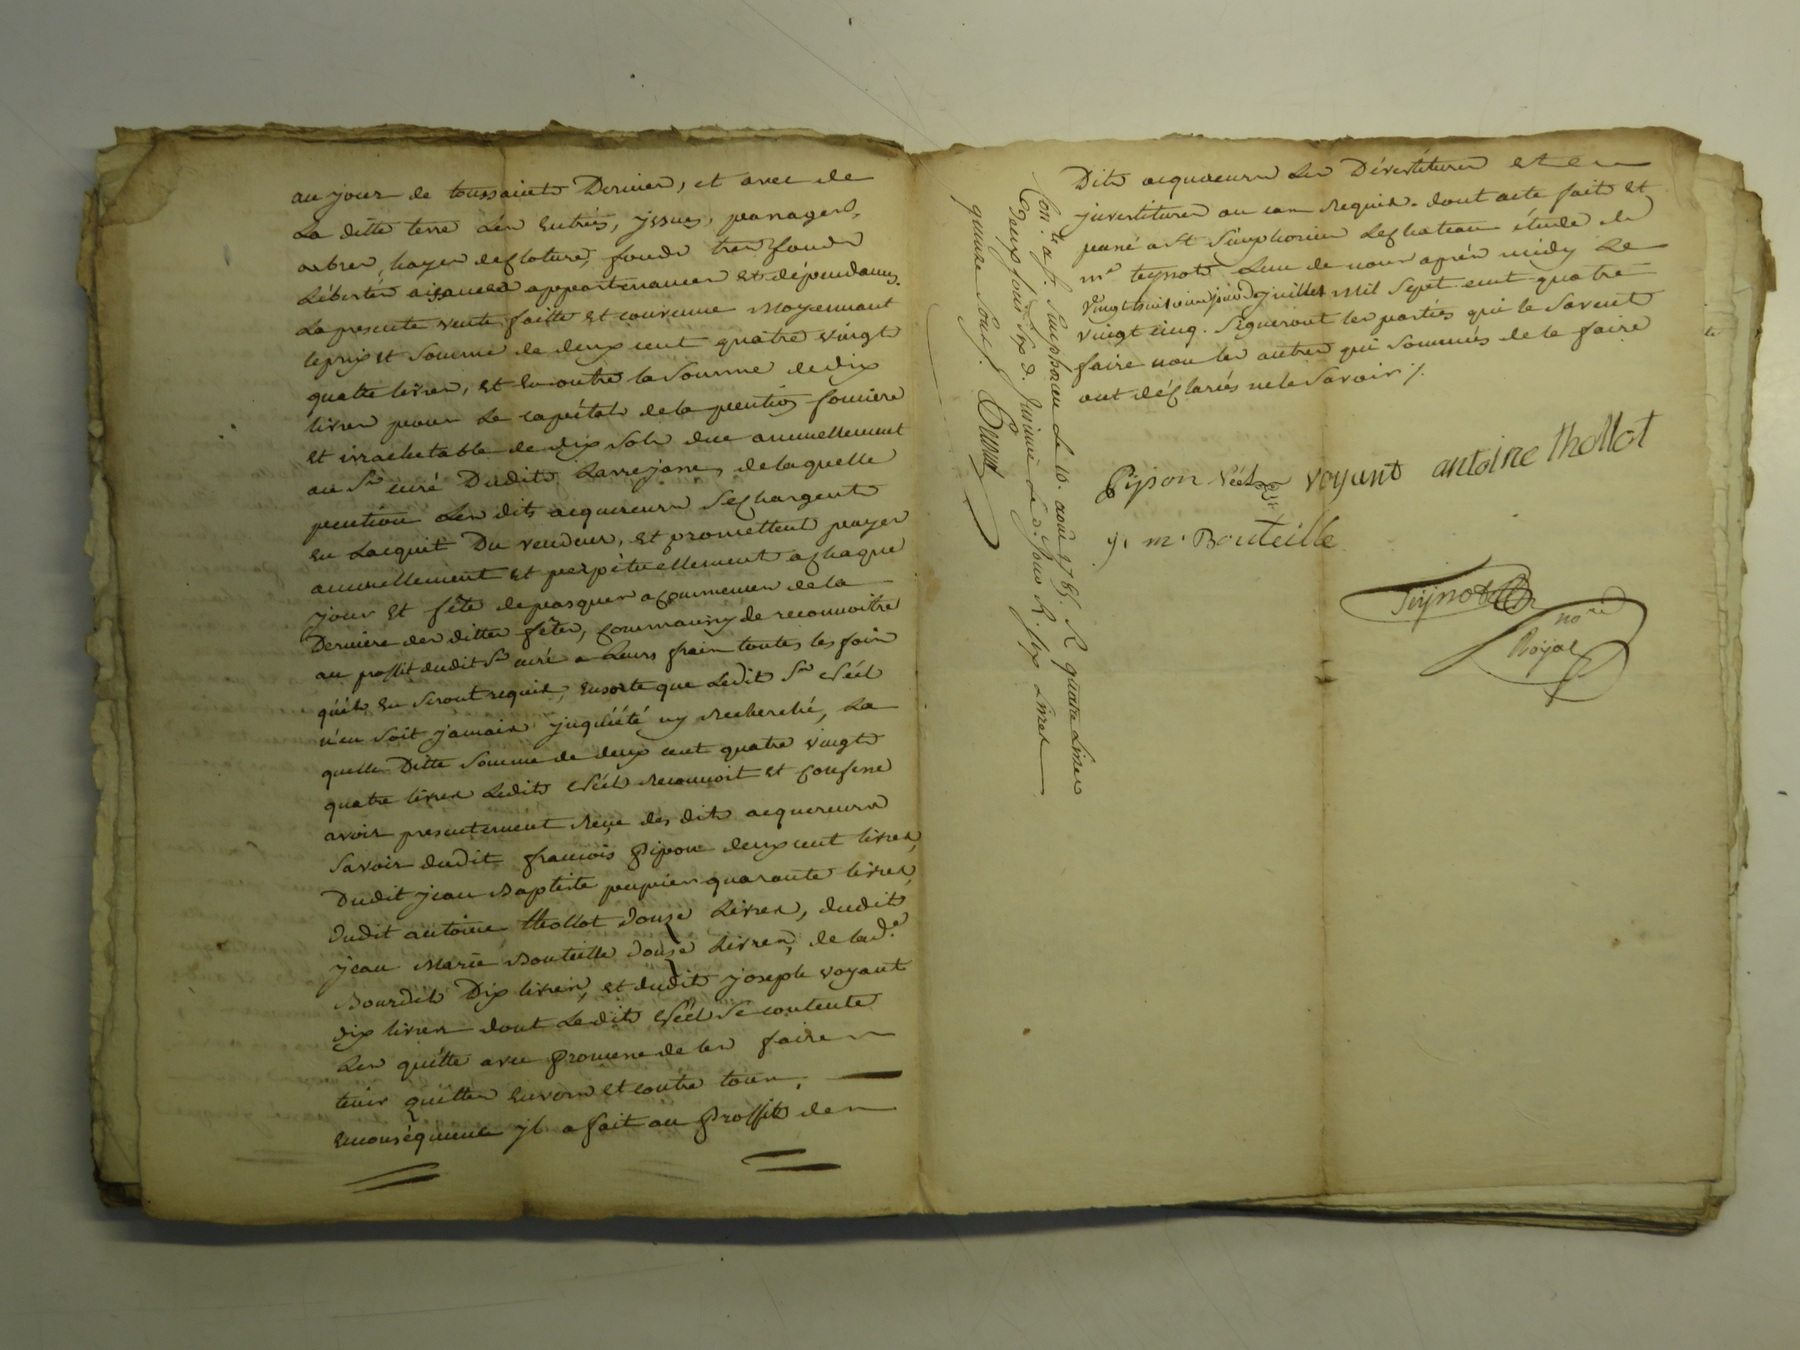 au jour de toussaints Dernier, et avec de
La ditte terre Ses Entrés, yssues, passages,
arbres, hayes de cloture, fonds tres fonds
Libertés aisances appartenances et dépendances.
La presente vente faitte et convenue moyennant
le prix et Somme de deux cent quatre vingt
quatre livres, et En outre la Somme de dix
livres pour Le capital de la pention fonciere
et irrachetable de dix sols due annuellement
au Sr curé Dudit Larrejasse, de laquelle
pention Les dits acquereurs Se chargent
En Lacquit Du vendeur, et promettent payer
annuellement et perpétuellement a chaque
jour et fête de pasques a commencer de la
Derniere des dittes fêtes, comme aussy de reconnoitre
au proffit dudit Sr curé a Leurs frais toutes les fois
qu'ils En Seront requis, Ensorte que Ledit Sr Véel
n'en Soit jamais jnquiété ny Recherché, La
quelle Ditte Somme de deux cent quatre vingt
quatre livres Ledit Véel Reconnoit et confesse
avoir presentement Reçue des dits acquereurs
Savoir dudit françois Pipon deux cent livres,
Dudit jean Baptiste pupier quarante livres,
Dudit antoine thollot douze Livres, dudit
jean Marie Bouteille douze Livres, de lad.e
Bourdit Dix livres, et dudit joseph voyant
dix livres dont Ledit Véel Se contente
Les quitte avec Promesse de les faire
tenir quittes Envers et contre tous,
En conséquence jl a fait au Proffit des
Dits acquereurs Les Dévestitures et en
jnvestitures au cas Requis. dont acte fait et
passé a St Simphorien Le chateau étude de
me teynot L'un de nous après midy Le
Vingt huitieme jour de juillet mil Sept cent quatre
vingt cinq. Signeront les parties qui le Savent
faire non les autres qui Sommés de le faire
ont déclarés ne le Savoir ./.
Pipon Véel voyant antoine thollot
j. m. Bouteille
Teynot
nore
Royal
Con.lé a St. Simphorien Le 10. août 1785. R quatre Livres
Deux sous six d. R. six Livres
quinze Sous.